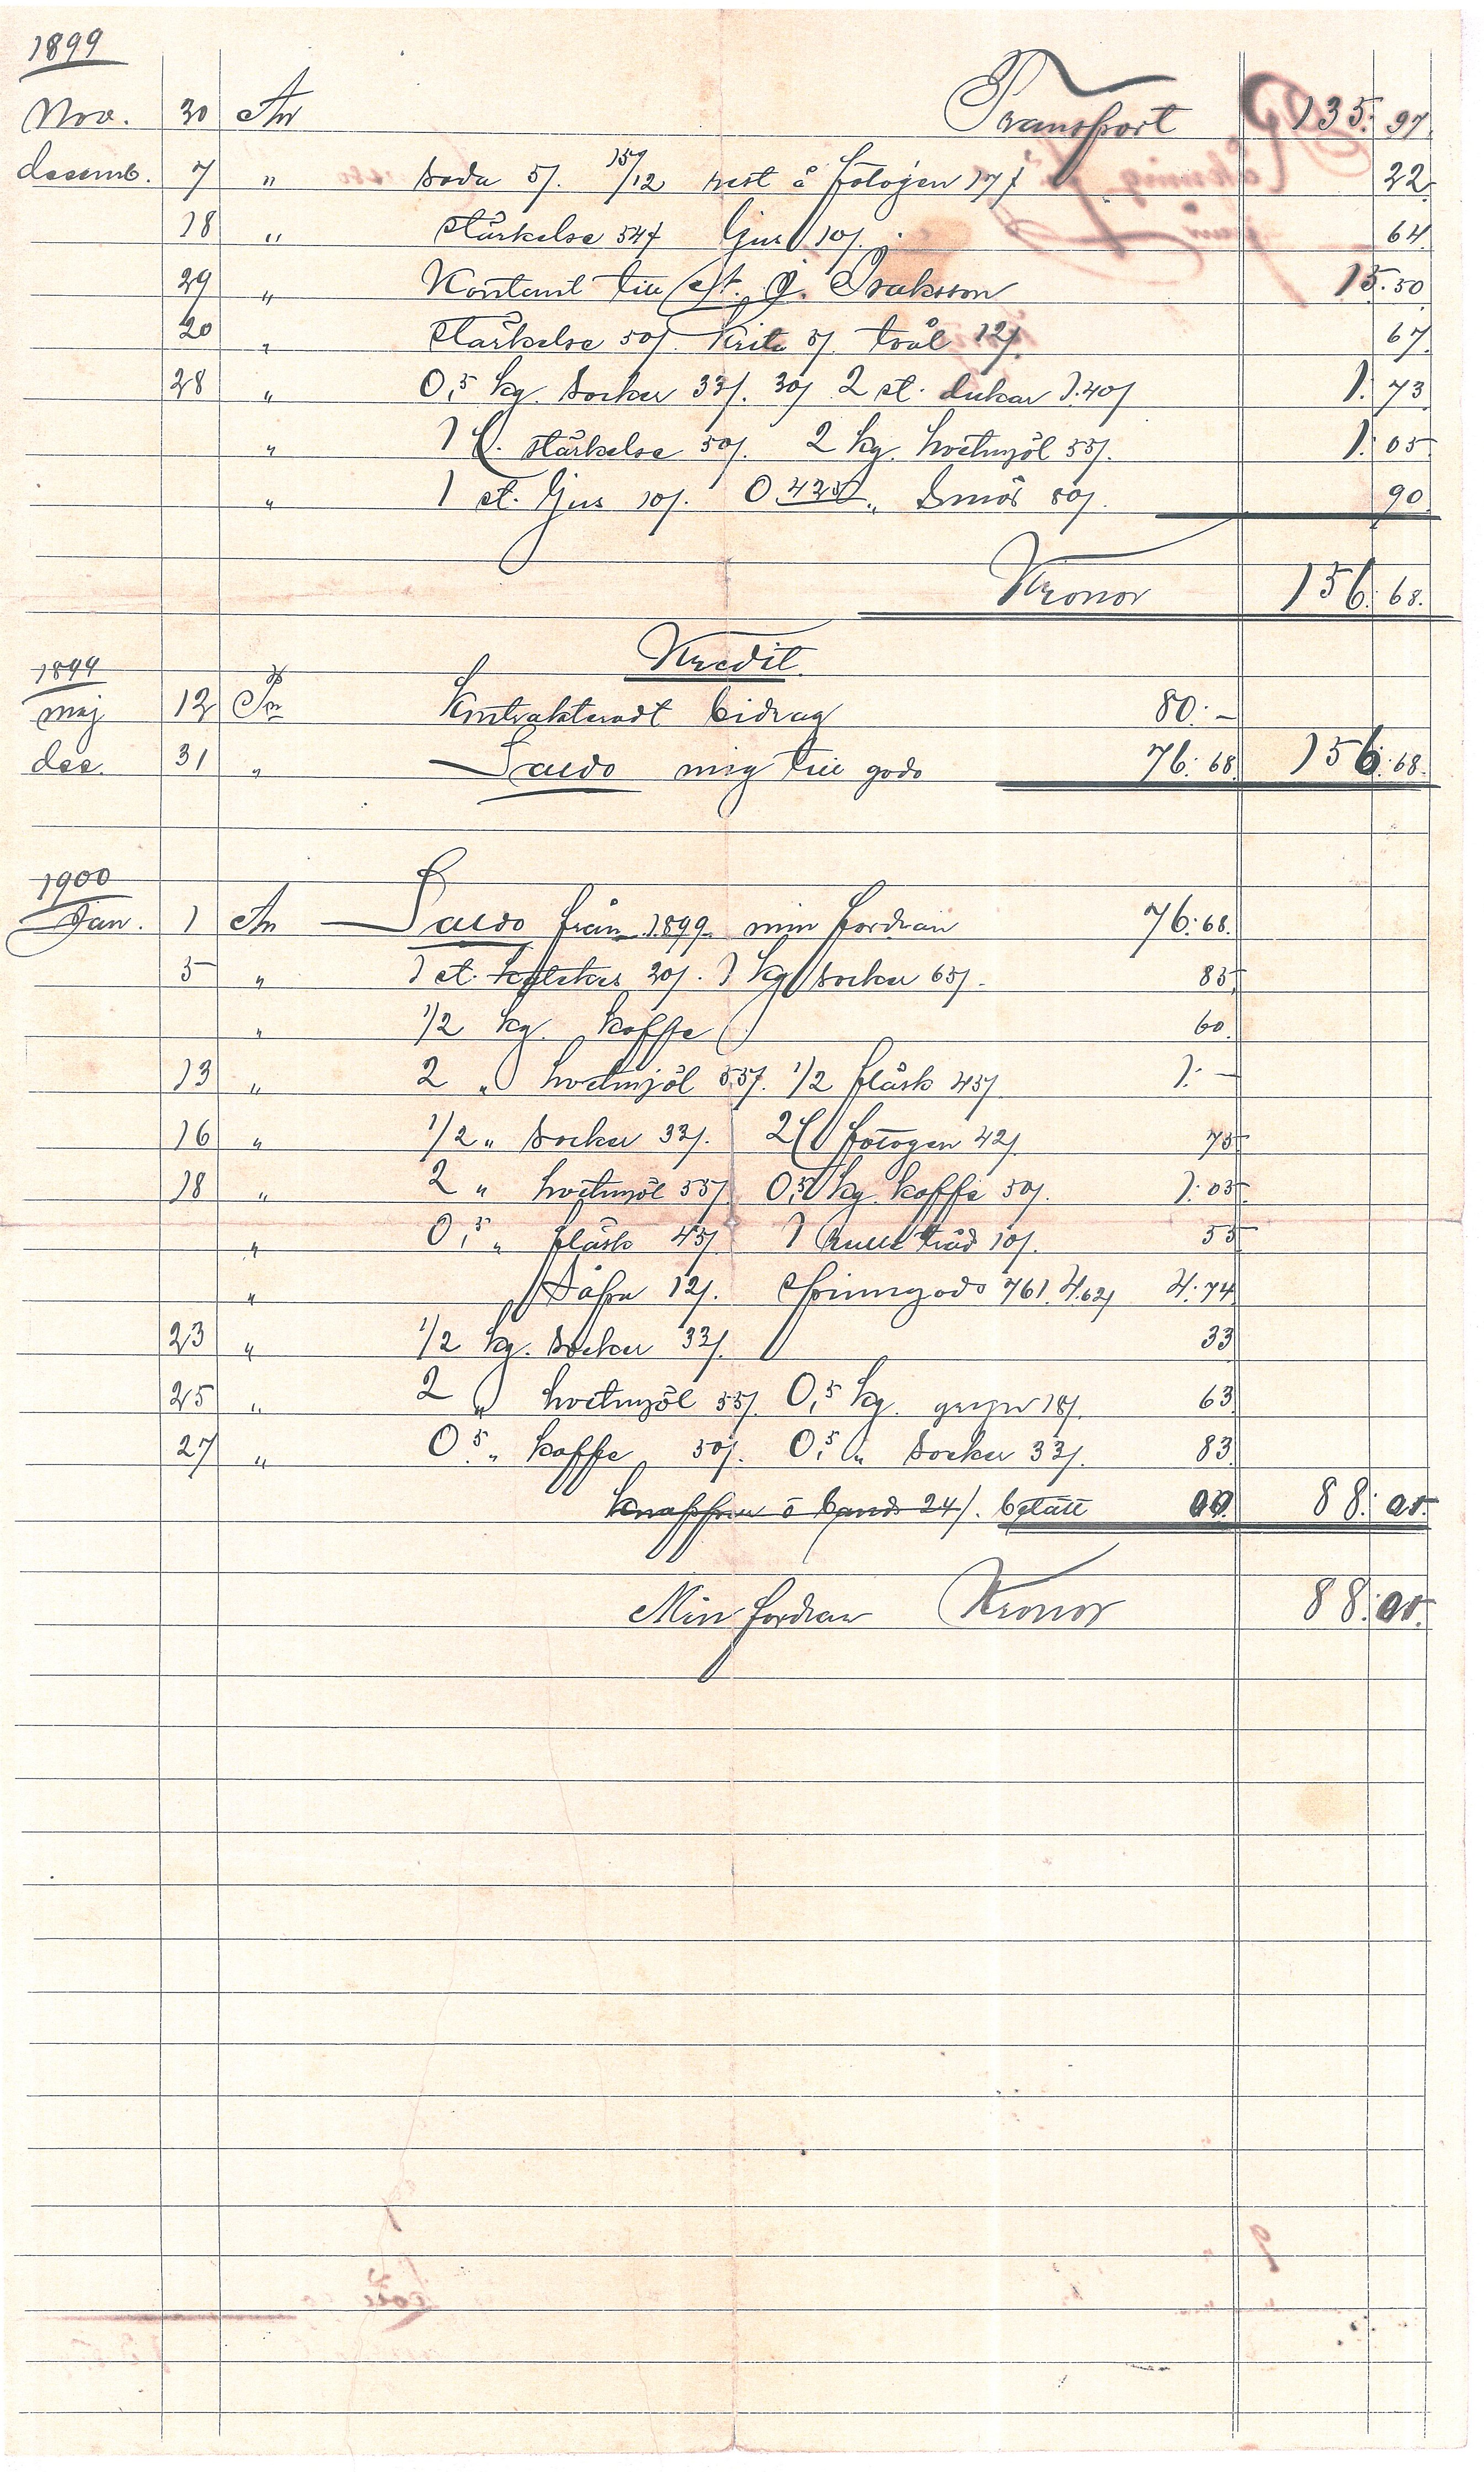 1899
Nov. 30 An Transport 135. 97.
desemb. 7 " Soda 5/. 15/12 rest å fotojen 17/ 22
18 " Stärkelse 54/ ljus 10/. 64
29 " Kontant till St. J. Isaksson 15.50
20 " Stärkelse 50/. Krita 5/. tvål 12/. 67.
28 " 0,5 kg. Socker 33/. 30/ 2 st. dukar 1.40/ 1. 73
" 1 stärkelse 50/. 2 kg. hvetmjöl 55/. 1. 05
" 1 st. ljus 10/. 0,425 " Smör 80/. 90
Kronor 156. 68.
Kredit.
1899
maj 12 Pr Kontrakteradt bidrag 80. –
des. 31 " Saldo mig till godo 76. 68 156. 68
1900
Jan. 1 An Saldo från 1899 min fordran 76. 68.
5 " 1 st. 20/. 1 kg socker 65/. 85
" 1/2 kg. Kaffe 60.
13 " 2 " hvetmjöl 55/. 1/2 fläsk 45/ 1. –
16 " 1/2 " Socker 33/. 2 l fotogen 42/. 75
18 " 2 " hvetmjöl 55/. 0,5 kg. kaffe 50/. 1. 05
" 0,5 " fläsk 45/ 1 rulle tråd 10/. 55
" Såpa 12/. Spinngods 761. 4.62/ 4. 74
23 " 1/2 kg. Socker 33/. 33
25 " 2 " hvetmjöl 55/. 0,5 kg. gryn 18/. 63
27 " 0,5 " kaffe 50/. 0,5 " Socker 33/. 83.
Knappar o band 24/. betalt 00. 88. 01.
Min fordran Kronor 88. 01.